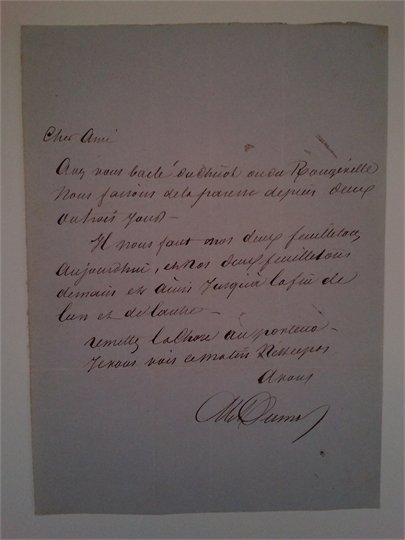 Cher Ami
Avez vous baclé du Chicot ou du Rougeville
Nous faisons de la paresse depuis deux
ou trois jours —
Il nous faut nos deux feuilletons
aujourd'hui, et nos deux feuilletons
demain et ainsi jusqu'à la fin de
l'un et de l'autre —
remettez la chose au porteur —
Je vous vois ce matin
A vous
Al Dumas